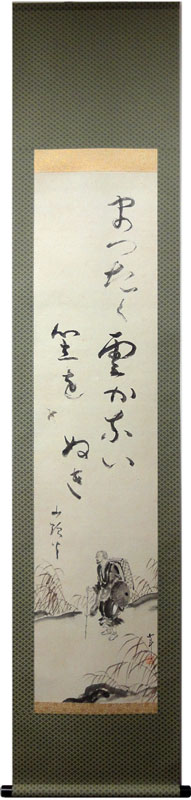 まつたく雲がない
笠をぬぎ
山頭火